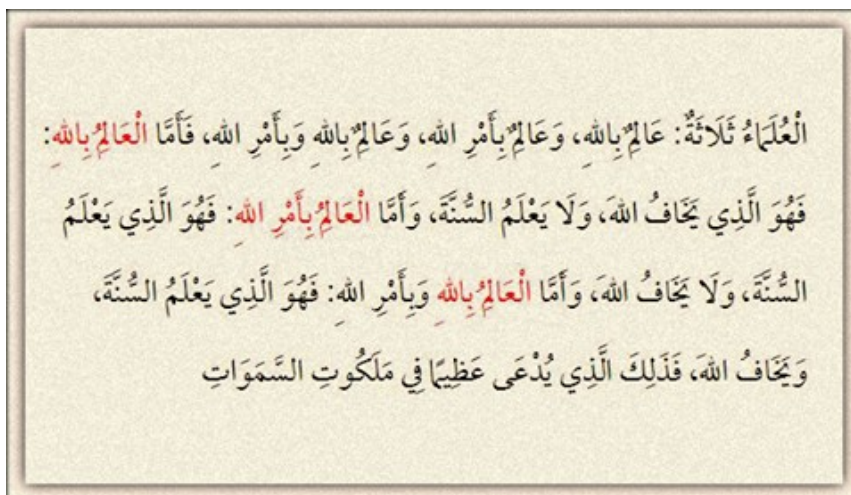 الْعُلَمَاءُ ثَلَاثَةٌ: عَالِمٌ بِاللهِ، وَعَالِمٌ بِأَمْرِ اللهِ، وَعَالِمٌ بِاللهِ وَبِأَمْرِ اللهِ، فَأَمَّا الْعَالِمُ بِاللهِ:
فَهُوَ الَّذِي يَخَافُ اللهَ، وَلَا يَعْلَمُ السُّنَّةَ، وَأَمَّا الْعَالِمُ بِأَمْرِ اللهِ: فَهُوَ الَّذِي يَعْلَمُ
السُّنَّةَ، وَلَا يَخَافُ اللهَ، وَأَمَّا الْعَالِمُ بِاللهِ وَبِأَمْرِ اللهِ: فَهُوَ الَّذِي يَعْلَمُ السُّنَّةَ،
وَيَخَافُ اللهَ، فَذَلِكَ الَّذِي يُدْعَى عَظِيمًا فِي مَلَكُوتِ السَّمَوَاتِ